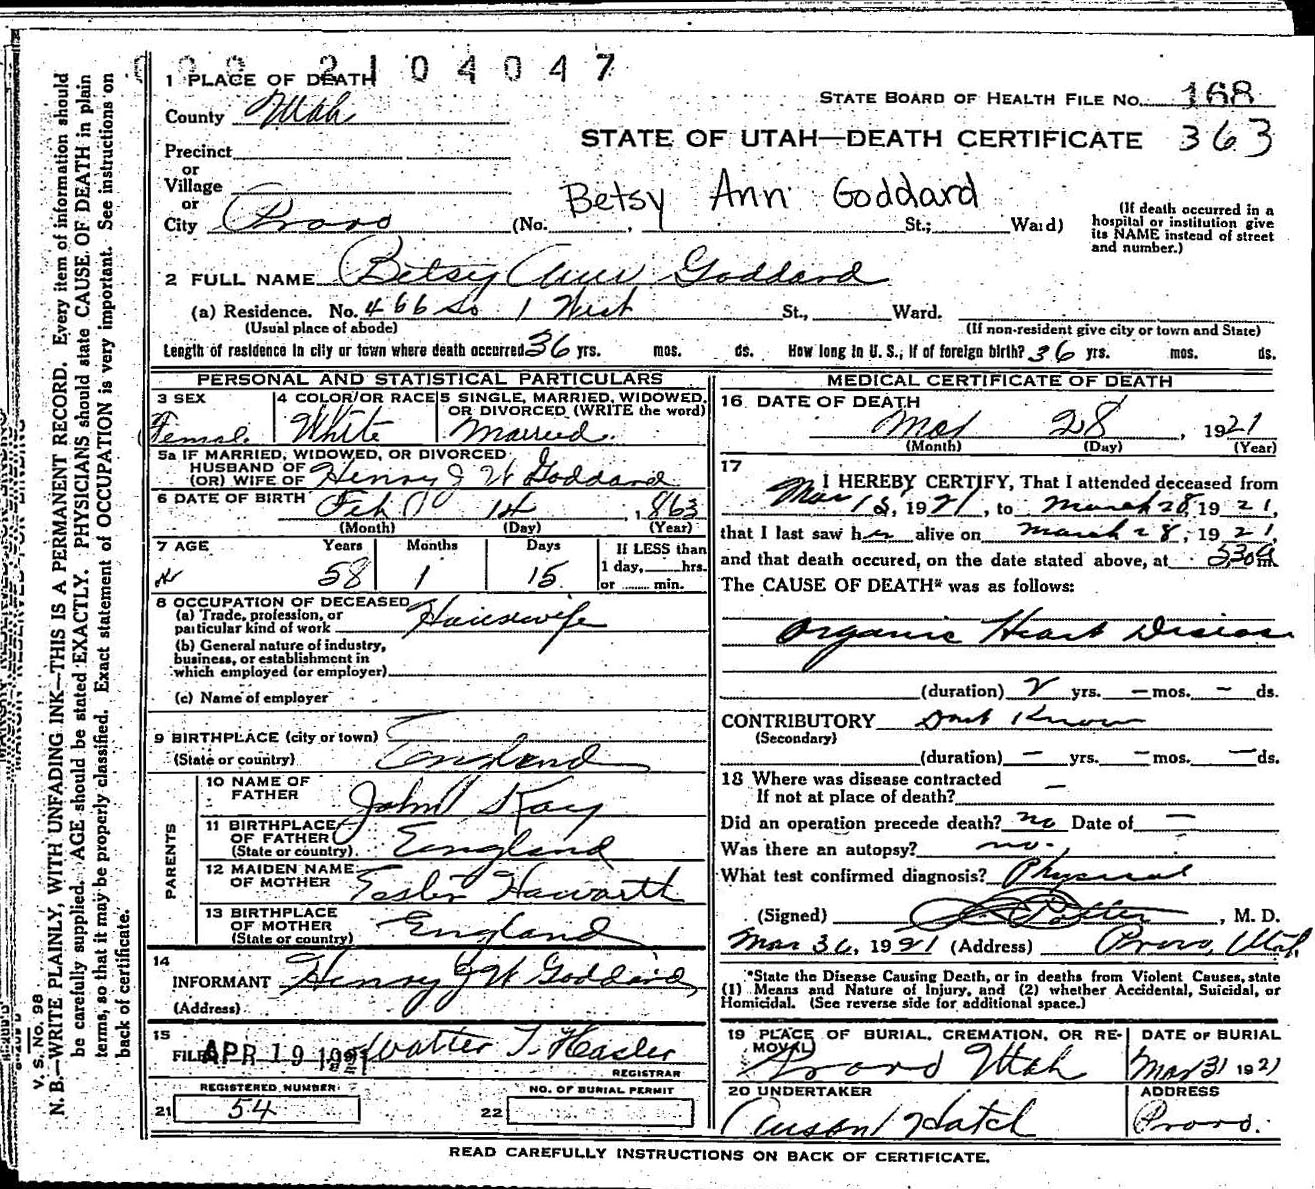 2104047
1 PLACE OF DEATH
County Utah
STATE BOARD OF HEALTH FILE NO. 168
STATE OF UTAH—DEATH CERTIFICATE 363
Precinct
or
Village
or
City Provo (No. , Betsy Ann Goddard St.; Ward)
(If death occurred in a hospital or institution give its NAME instead of street and number.)
2 FULL NAME Betsy Ann Goddard
(a) Residence. No. 466 So 1 West St., Ward.
(Usual place of abode) (If non-resident give city or town and State)
Length of residence in city or town where death occurred 36 yrs. mos. ds. How long in U. S., if of foreign birth? 36 yrs. mos. ds.
PERSONAL AND STATISTICAL PARTICULARS
3 SEX Female
4 COLOR/OR RACE White
5 SINGLE, MARRIED, WIDOWED, OR DIVORCED (WRITE the word) Married
5a IF MARRIED, WIDOWED, OR DIVORCED
HUSBAND OF
(OR) WIFE OF Henry J W Goddard
6 DATE OF BIRTH Feb 14, 1863
(Month) (Day) (Year)
7 AGE Years 58 Months 1 Days 15
If LESS than
1 day, hrs.
or min.
8 OCCUPATION OF DECEASED
(a) Trade, profession, or
particular kind of work Housewife
(b) General nature of industry,
business, or establishment in
which employed (or employer)
(c) Name of employer
9 BIRTHPLACE (city or town)
(State or country) England
PARENTS
10 NAME OF FATHER John Kay
11 BIRTHPLACE OF FATHER (State or country) England
12 MAIDEN NAME OF MOTHER Haworth
13 BIRTHPLACE OF MOTHER (State or country) England
14
INFORMANT Henry J W Goddard
(Address)
15
FILED APR 19 1921 Walter T. Hasler
REGISTRAR
REGISTERED NUMBER NO. OF BURIAL PERMIT
21 54 22
MEDICAL CERTIFICATE OF DEATH
16 DATE OF DEATH
Mar 28, 1921
(Month) (Day) (Year)
17
I HEREBY CERTIFY, That I attended deceased from
Mar 12, 1921, to March 28, 1921,
that I last saw her alive on March 28, 1921,
and that death occured, on the date stated above, at 530 a m
The CAUSE OF DEATH* was as follows:
Organic Heart Disease
(duration) 2 yrs. – mos. – ds.
CONTRIBUTORY Dont Know
(Secondary)
(duration) – yrs. – mos. – ds.
18 Where was disease contracted
If not at place of death? –
Did an operation precede death? no Date of –
Was there an autopsy? no.
What test confirmed diagnosis? Physical
(Signed) , M. D.
Mar 30, 1921 (Address) Provo, Utah
*State the Disease Causing Death, or in deaths from Violent Causes, state
(1) Means and Nature of Injury, and (2) whether Accidental, Suicidal, or
Homicidal. (See reverse side for additional space.)
19 PLACE OF BURIAL, CREMATION, OR REMOVAL Provo Utah
DATE OF BURIAL Mar 31 1921
20 UNDERTAKER Hatch
ADDRESS Provo.
READ CAREFULLY INSTRUCTIONS ON BACK OF CERTIFICATE.
V. S. No. 98
N. B.—WRITE PLAINLY, WITH UNFADING INK—THIS IS A PERMANENT RECORD. Every item of information should
be carefully supplied. AGE should be stated EXACTLY. PHYSICIANS should state CAUSE OF DEATH in plain
terms, so that it may be properly classified. Exact statement of OCCUPATION is very important. See instructions on
back of certificate.